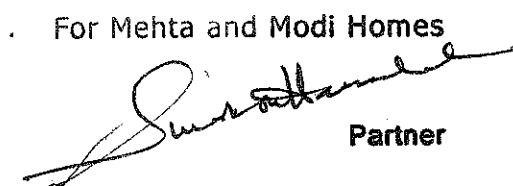 . For Mehta and Modi Homes
Partner